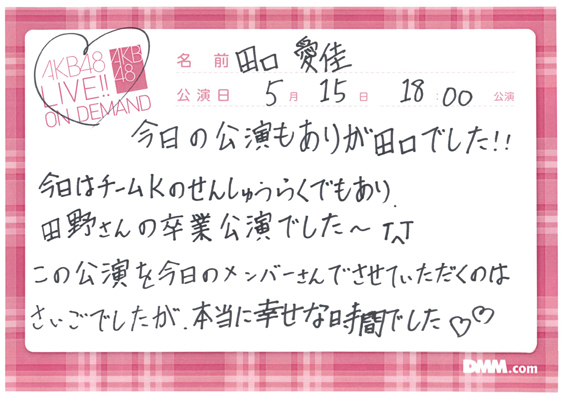 AKB48
LIVE!!
ON DEMAND
AKB
48
名前 田口 愛佳
公演日 5月15日 18:00 公演
今日の公演もありが田口でした!!
今日はチームKのせんしゅうらくでもあり、
田野さんの卒業公演でした〜 T^T
この公演を今日のメンバーさんでさせていただくのは
さいごでしたが、本当に幸せな時間でした♡♡
DMM.com